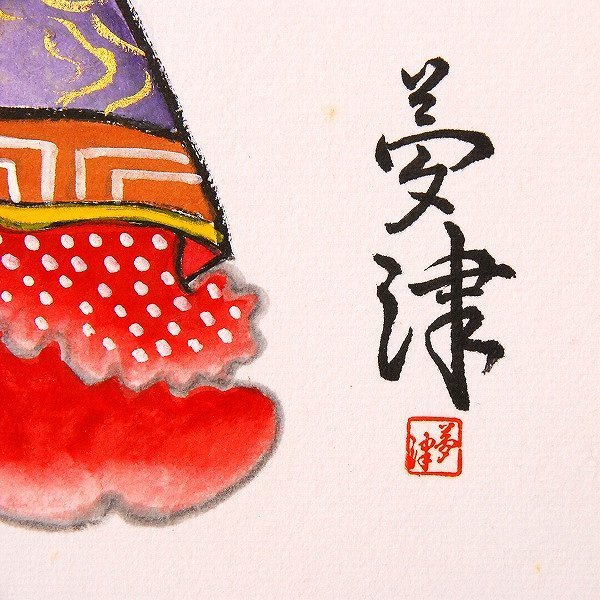 夢津
夢津